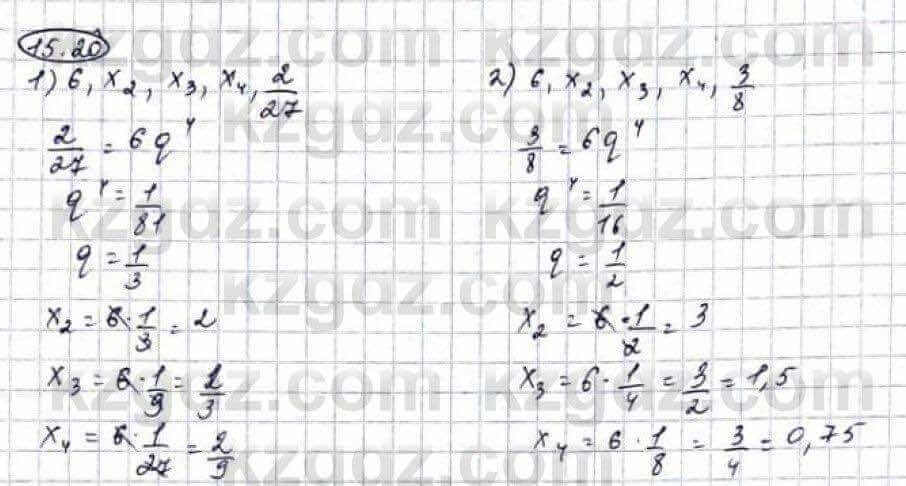 15.20
1) 6, x₂, x₃, x₄, 2/27
2/27 = 6q⁴
q⁴ = 1/81
q = 1/3
x₂ = 6 · 1/3 = 2
x₃ = 6 · 1/9 = 2/3
x₄ = 6 · 1/27 = 2/9
2) 6, x₂, x₃, x₄, 3/8
3/8 = 6q⁴
q⁴ = 1/16
q = 1/2
x₂ = 6 · 1/2 = 3
x₃ = 6 · 1/4 = 3/2 = 1,5
x₄ = 6 · 1/8 = 3/4 = 0,75
kzgdz.com
kzgdz.com
kzgdz.com
kzgdz.com
kzgdz.com
kzgdz.com